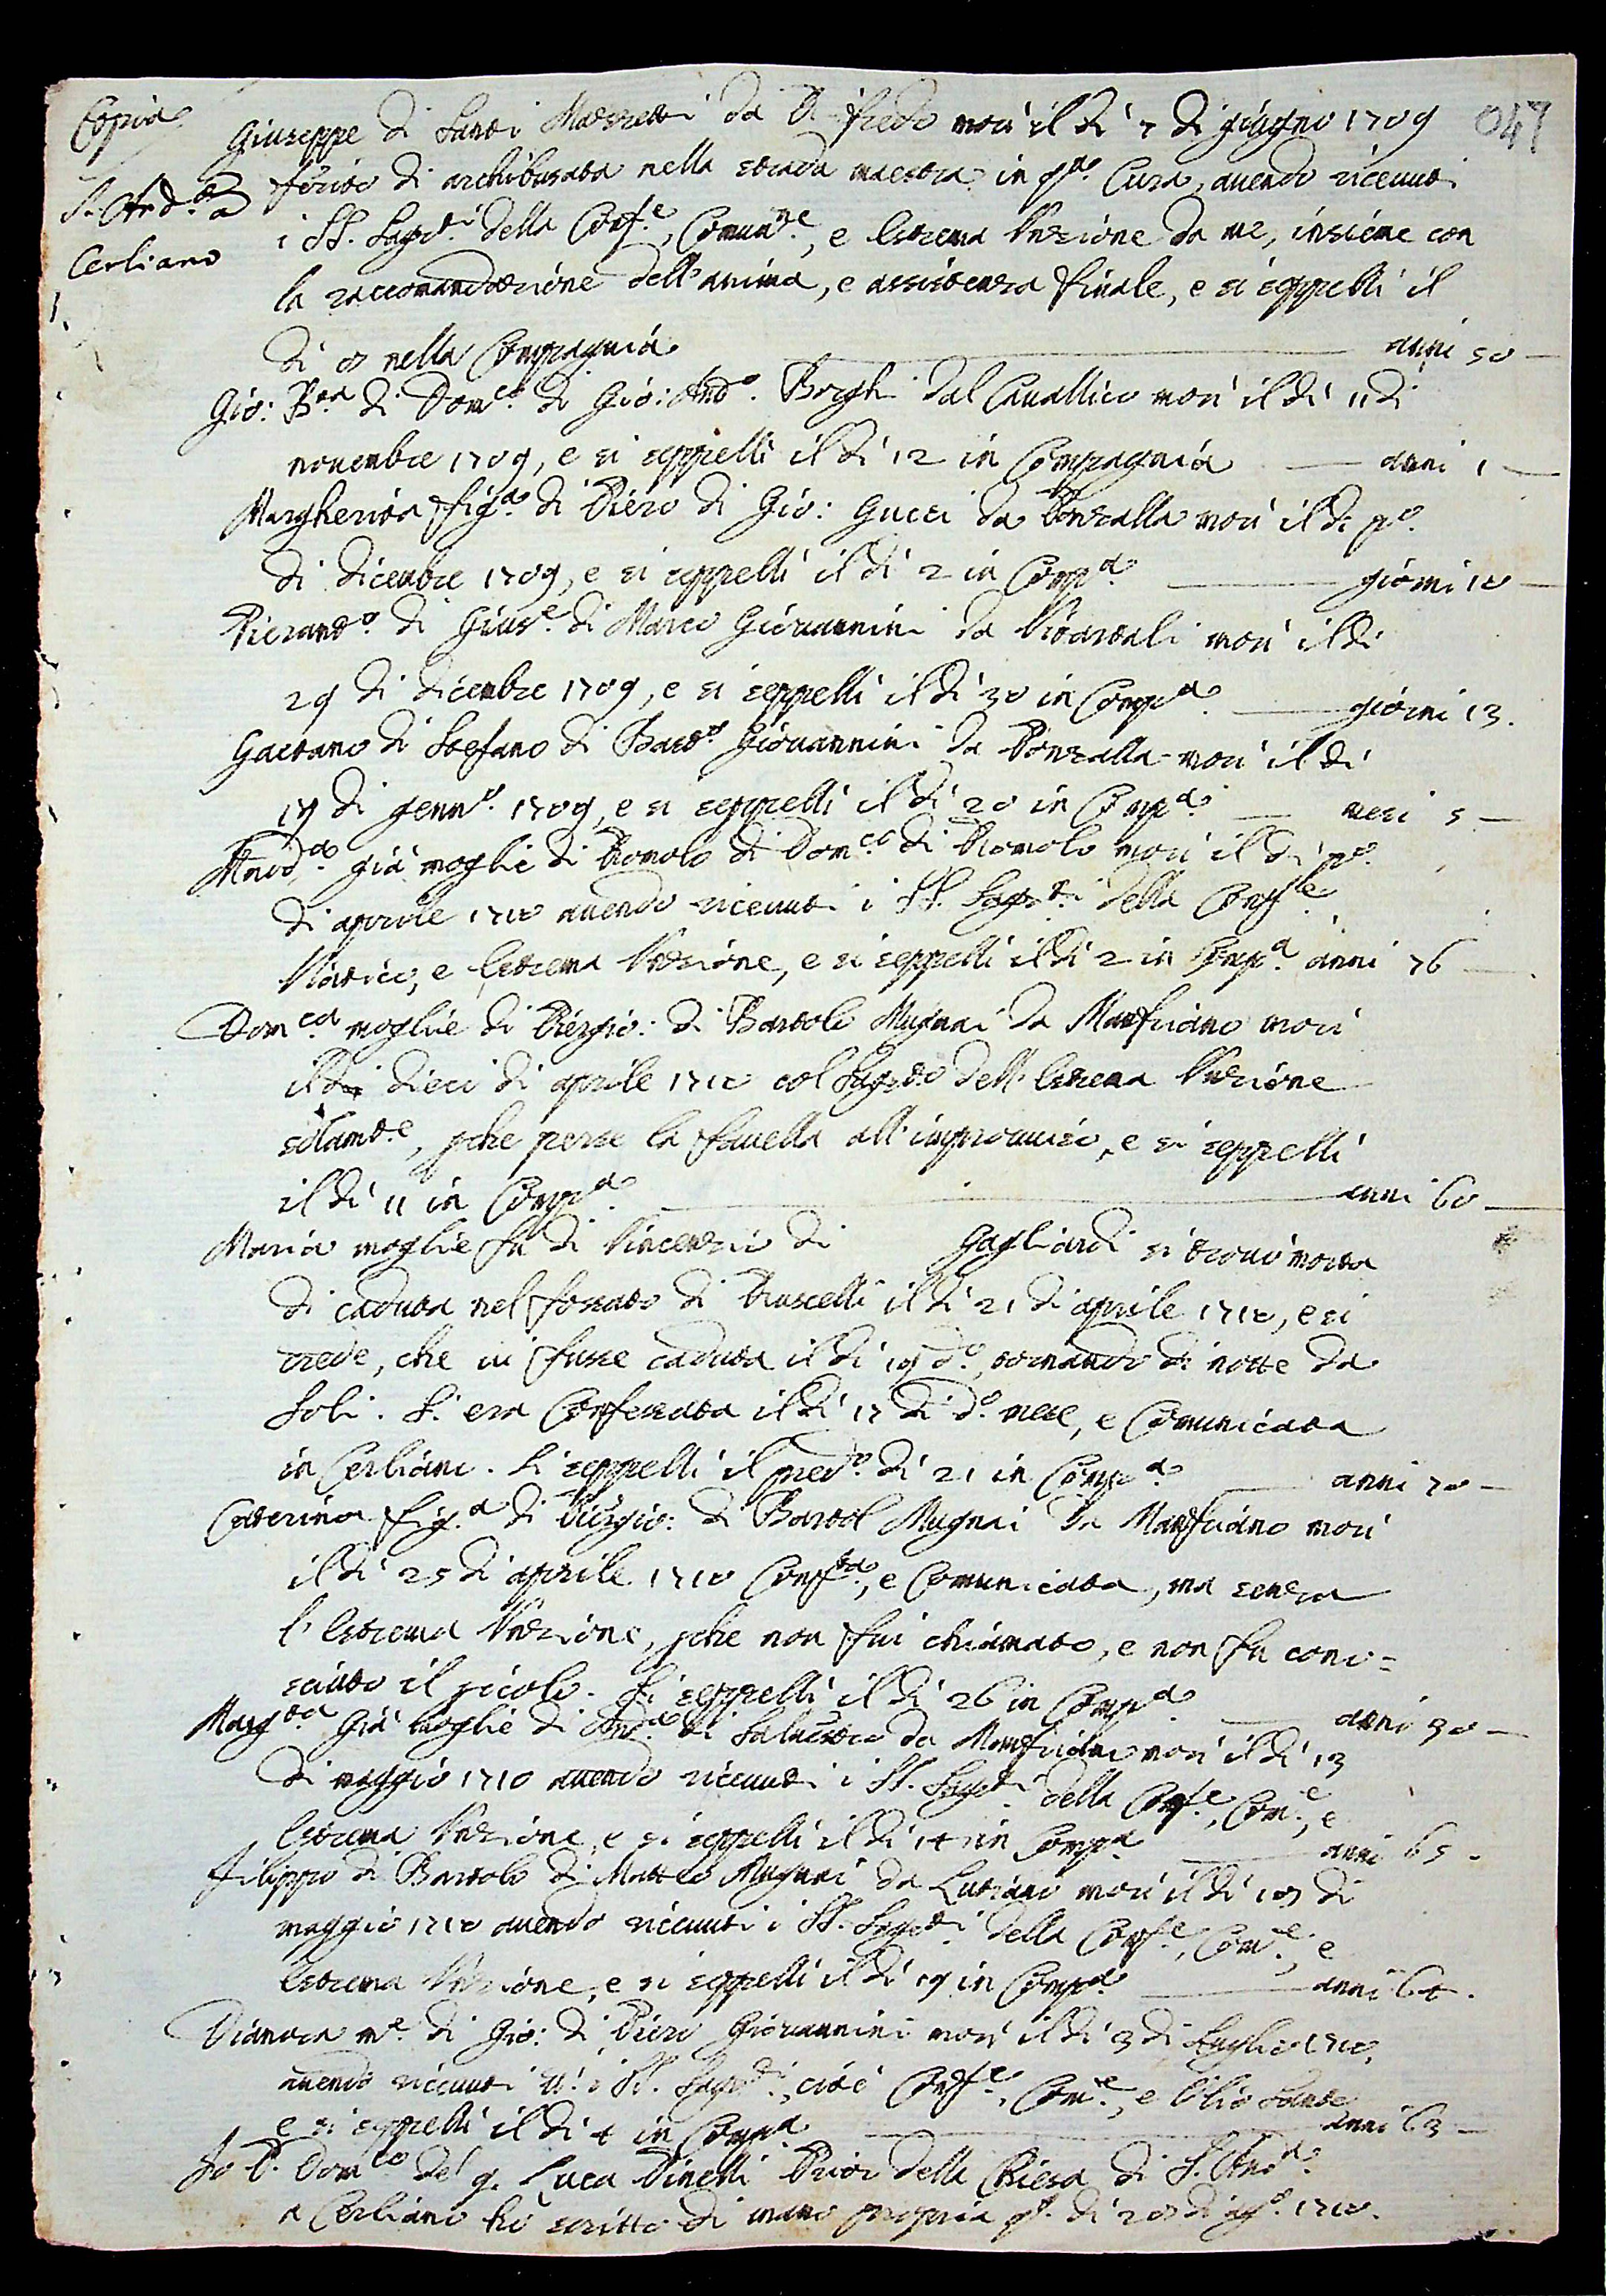 Copia
S. And.ª a
Cerliano
047
Giuseppe di Santi da mori il di 7 di giugno 1709
ferito di archibusata nella strada maestra in q.ª Cura, avendo ricevuti
i SS. Sagr.ti della Conf.e, Comun.ne, e Estrema Unzione da me, insieme con
la raccomandazione dell'anima, e assistenza finale, e si seppelli il
di 8 nella Compagnia anni 50
Gio: B.ta di Dom.co di Gio: And.ª Borghi dal Cavallico mori il di 11 di
novembre 1709, e si seppelli il di 12 in Compagnia anni 1
Margherita fig.a di Piero di Gio: Gucci da Ponzalla mori il di p.o
di dicembre 1709, e si seppelli il di 2 in Comp.a giorni 10
Pierant.o di Gius.e di Marco Giovannini da mori il di
29 di dicembre 1709, e si seppelli il di 30 in Comp.a giorni 13.
Gaetano di Stefano di Bart.o Giovannini da Ponzalla mori il di
19 di genn.o 1709, e si seppelli il di 20 in Comp.a mesi 5
già moglie di Romolo di Dom.co di Romolo mori il di p.o
di aprile 1710 avendo ricevuti i SS. Sagr.ti della Conf.e
Viatico, e Estrema Unzione, e si seppelli il di 2 in Comp.a anni 76
Dom.ca moglie di Piergio: di Bartolo Mugnai da Manfriano mori
il di dieci di aprile 1710 col Sagr.to dell'Estrema Unzione
solam.te, pche perse la favella all'improviso, e si seppelli
il di 11 in Comp.a anni 60
Maria moglie fu di Vincenzio di Gagliardi si trovò morta
di caduta nel fossato di Ruscelli il di 21 di aprile 1710, e si
crede, che ivi fusse caduta il di 18 d.o, tornando di notte da
Soli. Si era Confessata il di 17 di d.o mese, e Comunicata
in Cerliano. Si seppelli il pred.o di 21 in Comp.a anni 70
Caterina fig.a di Piergio: di Bartol Mugnai da Manfriano mori
il di 25 di aprile 1710 Conf.ta, e Comunicata, ma senza
l'Estrema Unzione, pche non fui chiamato, e non fu cono=
sciuto il picolo. Si seppelli il di 26 in Comp.a anni 30
Marg.ta Già moglie di And.a di Salvestro da Manfriano mori il di 13
di maggio 1710 avendo ricevuti i SS. Sagr.ti della Conf.e, Com.e, e
Estrema Unzione, e si seppelli il di 14 in Comp.a anni 65.
Filippo di Bartolo di Matteo Mugnai da Lutiano mori il di 18 di
maggio 1710 avendo ricevuti i SS. Sagr.ti della Conf.e, Com.e, e
Estrema Unzione, e si seppelli il di 19 in Comp.a anni 64.
Dianora m.e di Gio: di Piero Giovannini mori il di 3 di Luglio 1710,
avendo ricevuti i SS. Sagr.ti, cioè Conf.e, Com.e, e Olio Santo
e si seppelli il di 4 in Comp.a anni 63
Io P. Dom.co del q. Luca Vinelli Prior della Chiesa di S. And.a
a Cerliano hò scritto di mano propria q.to di 28 di ag.o 1710.